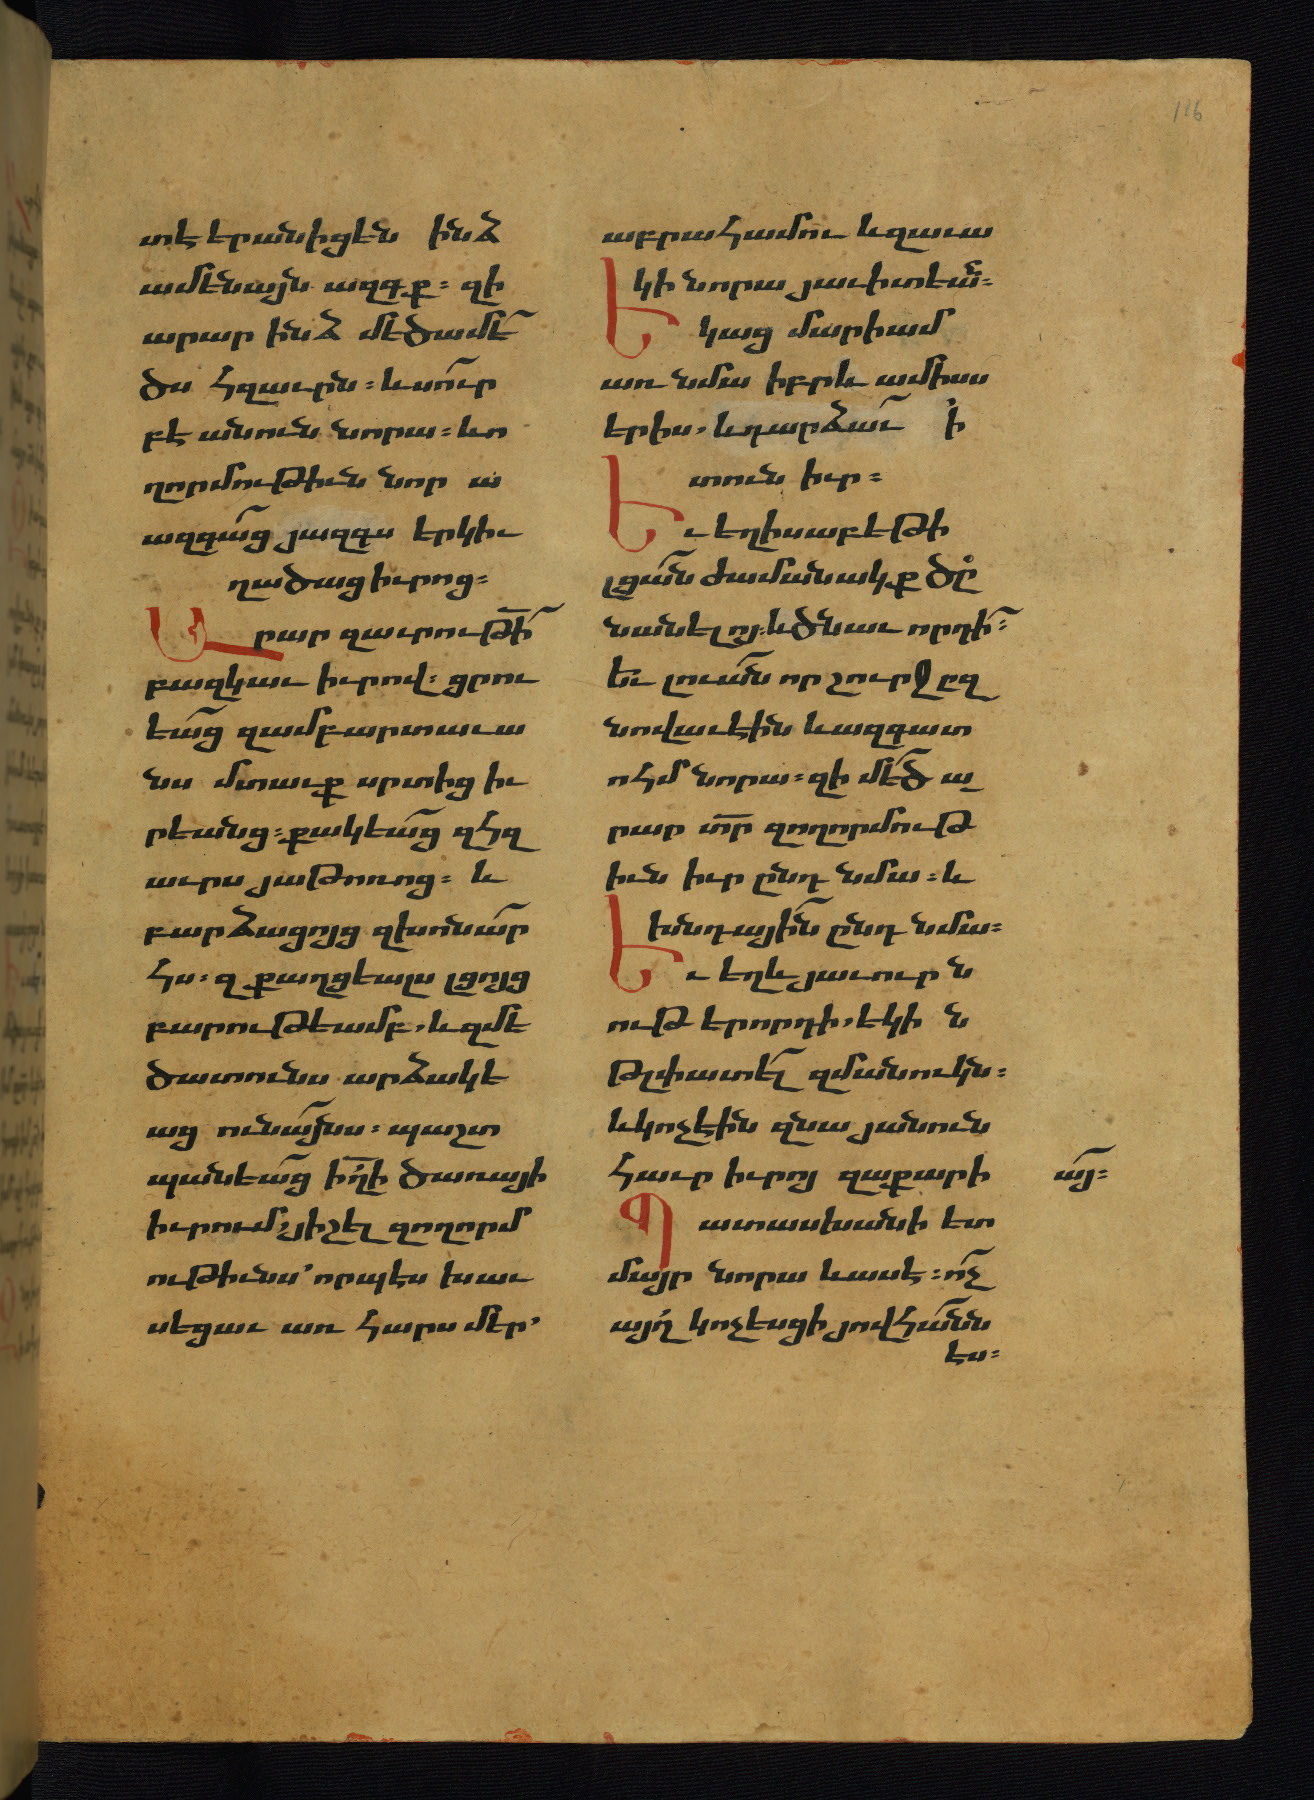 116
տէ երանիցեն ինձ
ամենայն ազգք։ զի
արար ինձ մեծամե՞
ծս հզաւրն։ և ս՞ուր
բէ անուն նորա։ և ո
ղորմութիւն նոր ա
ազգա՞ց յազգս երկիւ
ղածաց իւրոց։
Արար զաւրութի՞
բազկաւ իւրով։ ցրու
եա՞ց զամբարտաւա
նս մտաւք սրտից իւ
րեանց։ քակեա՞ց զհզ
աւրս յաթոռոց։ և
բարձացոյց զխոնա՞ր
հս։ զքաղցեալս լցոյց
բարութեամբ, և զմե
ծատունս արձակե
աց ունա՞յնս։ պաշտ
պանեա՞ց ի՞լի ծառայի
իւրում, յիշել զողորմ
ութիւնս՝ որպէս խաւ
սեցաւ առ հարս մեր՝
աբրահամու և զաւա
կի նորա յաւիտեա՞ն։
Եկաց մարիամ
առ նմա իբրև ամիսս
երիս, և դարձա՞ւ ի
տուն իւր։
Եւ եղիսաբեթի
լցա՞ն ժամանակք ծը
նանել ոյ։ և ծնաւ որդի՞։
Եւ լուա՞ն որ շուրջ ըզ
նովաւ էին և ազգատ
ոհմ նորա։ զի մե՞ծ ա
րար տ՞ր զողորմութ
իւն իւր ընդ նմա։ և
խնդայի՞ն ընդ նմա։
Եւ եղև յաւուր ն
ութերորդի, եկի ն
թլփատե՞լ զմանուկն։
և կոչէին զնա յանուն
հաւր իւրոյ զաքարի
ա՞յ։
Պատասխանի ետ
մայր նորա և ասէ։ ո՞չ
այղ կոչեսցի յովհա՞նն
էս։